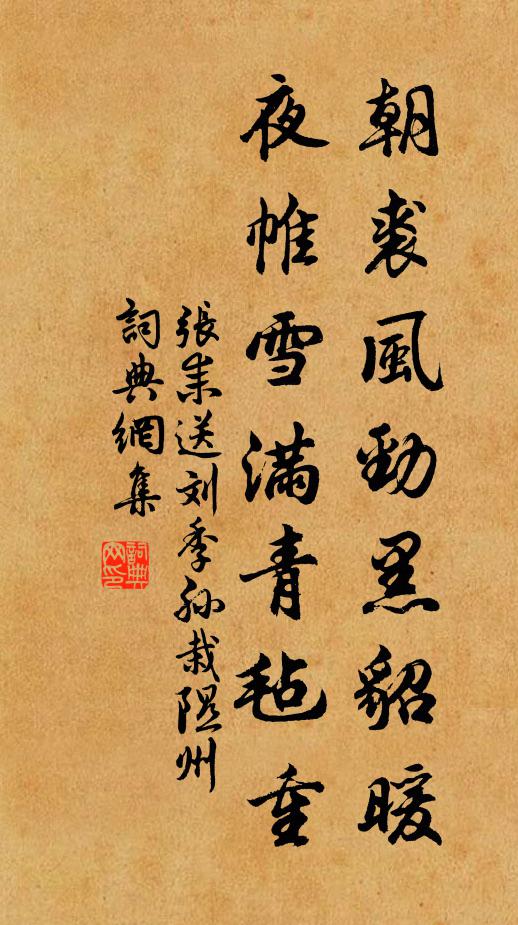 朝裘風勁黑貂暖
夜帷雪满青毡重
張耒送刘季孙栽隰州
詞典網集
詞典网印